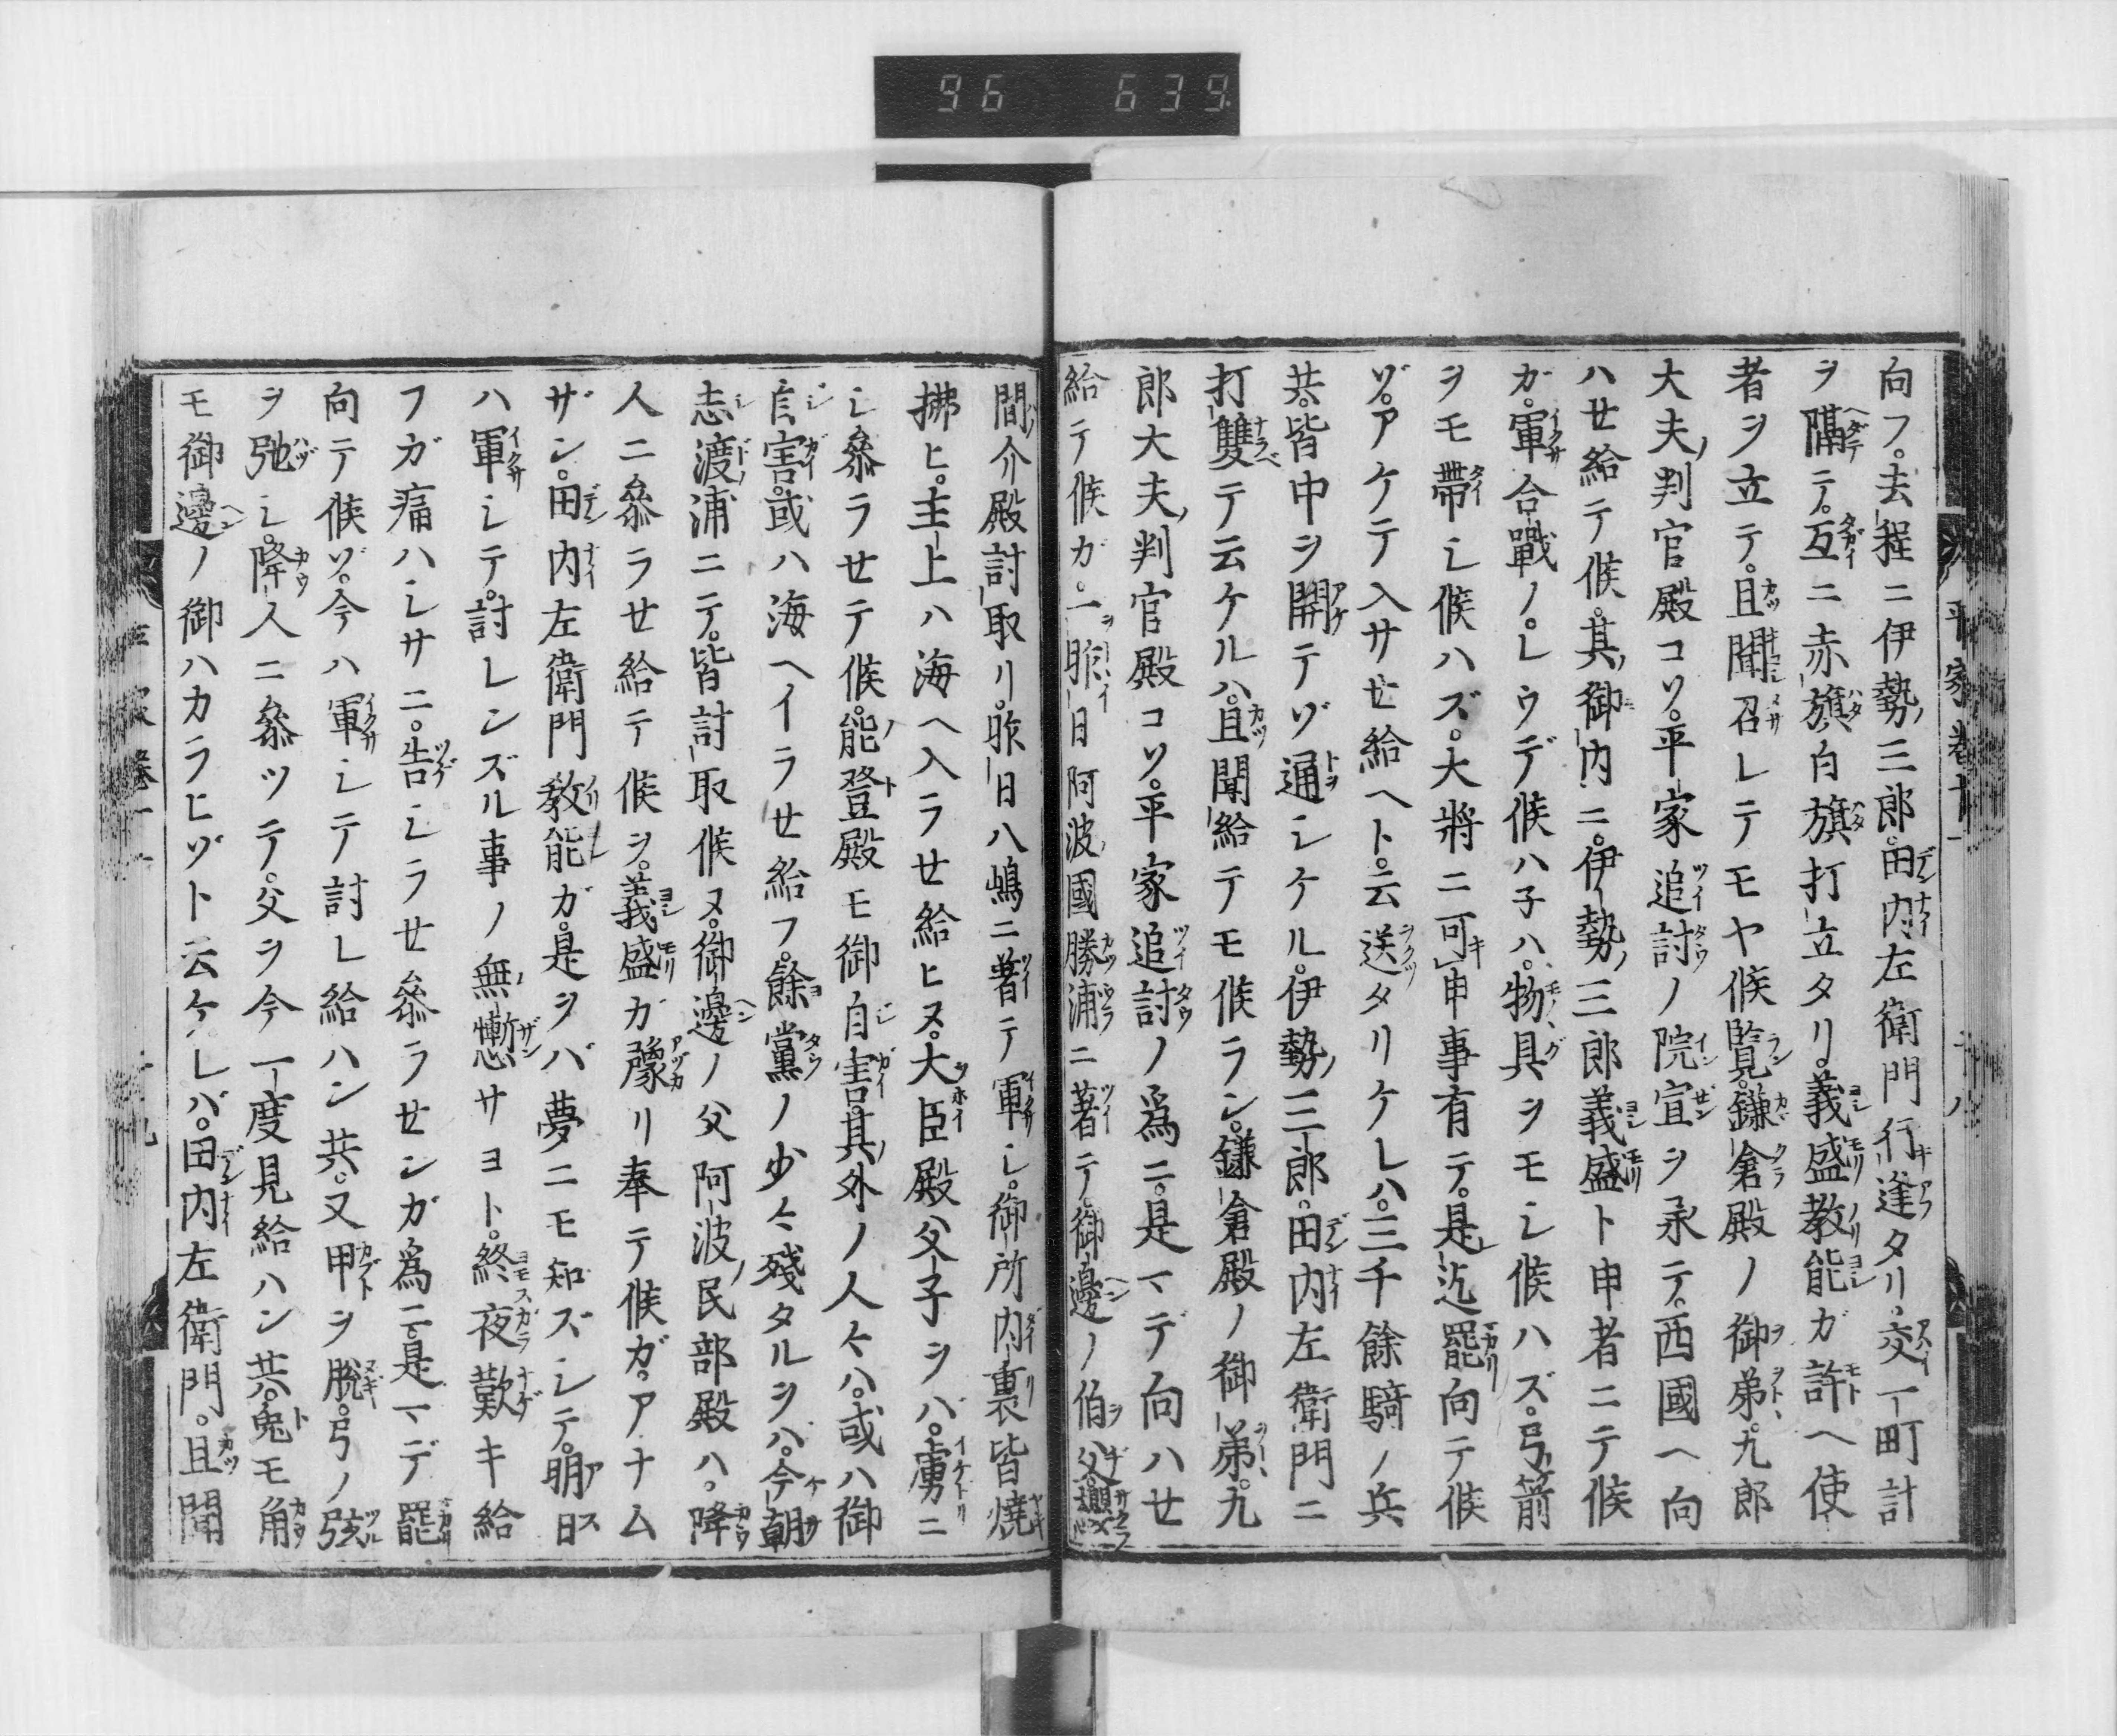 96 639
平家巻十一
向フ。去程ニ伊勢ノ三郎。田内左衛門行逢タリ。交一町計
ヲ隔テ。互ニ赤旗白旗打立タリ。義盛教能ガ許ヘ使
者ヲ立テ。且聞召レテモヤ候覧。鎌倉殿ノ御弟。九郎
大夫ノ判官殿コソ。平家追討ノ院宣ヲ承テ。西國ヘ向
ハせ給テ候。其ノ御内ニ。伊勢ノ三郎義盛ト申者ニテ候
ガ。軍合戰ノ。レウデ候ハ子ハ。物具ヲモし候ハズ。弓箭
ヲモ帶し候ハズ。大將ニ可申事有テ。是迄罷向テ候
ゾ。アケテ入サせ給ヘト。云送タリケレハ。三千餘騎ノ兵
共。皆中ヲ開テゾ通しケル。伊勢ノ三郎。田内左衛門ニ
打雙テ云ケルハ。且聞給テモ候ラン。鎌倉殿ノ御弟。九
郎大夫ノ判官殿コソ。平家追討ノ為ニ。是マデ向ハせ
給テ候ガ。一昨日阿波ノ國勝浦ニ著テ。御邊ノ伯父。櫻
間ノ介殿討取リ。昨日八嶋ニ著テ軍し。御所内裏皆焼
拂ヒ。主上ハ海ヘ入ラせ給ヒヌ。大臣殿父子ヲバ。虜ニ
し參ラせテ候。能登殿モ御自害。其外ノ人々ハ。或ハ御
自害。或ハ海ヘイラせ給フ。餘黨ノ少々殘タルヲハ。今朝
志渡ノ浦ニテ。皆討取候ヌ。御邊ノ父阿波ノ民部殿ハ。降
人ニ參ラせ給テ候ヲ。義盛ガ預リ奉テ候ガ。アナム
ザン。田内左衛門教能ガ。是ヲバ夢ニモ知ズしテ。明日
ハ軍しテ。討レンズル事ノ無慙サヨト。終夜歎キ給
フガ痛ハしサニ。告しラせ參ラせンガ為ニ。是マデ罷
向テ候ゾ。今ハ軍しテ討レ給ハン共。又甲ヲ脱。弓ノ弦
ヲ弛し。降人ニ參ツテ。父ヲ今一度見給ハン共。兔モ角
モ御邊ノ御ハカラヒゾト云ケレバ。田内左衛門。且聞